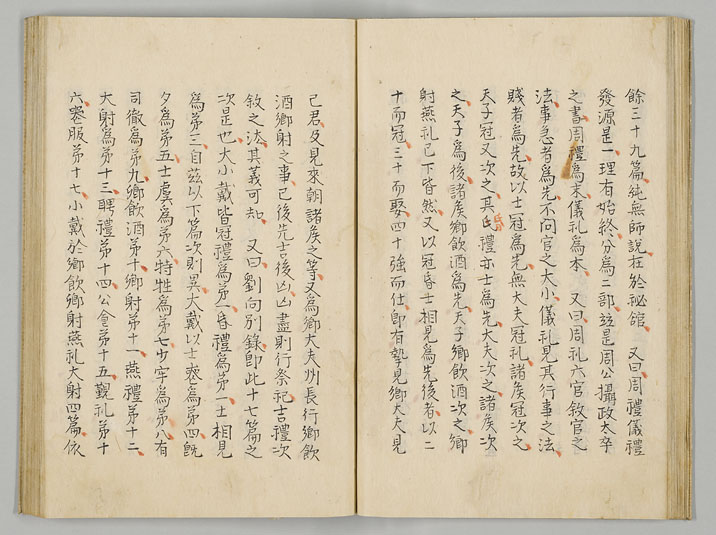 餘三十九篇純無師說在於祕舘　又曰周禮儀禮
發源是一理有始終分為二部竝是周公攝政太卒
之書周禮為末儀礼為本　又曰周礼六官敘官之
法事急者為先不問官之大小儀礼見其行事之法
賤者為先故以士冠為先無大夫冠礼諸矦冠次之
天子冠又次之其昏禮亦士為先大夫次之諸矦次
之天子為後諸矦鄉飲酒為先天子鄉飲酒次之鄉
射燕礼已下皆然又以冠昏士相見為先後者以二
十而冠三十而娶四十強而仕卽有摯見鄉大夫見
己君及見來朝諸矦之等又為鄉大夫州長行鄉飲
酒鄉射之事已後先吉後凶凶盡則行祭祀吉禮次
敘之法其義可知　又曰劉向別錄卽此十七篇之
次是也大小戴皆冠禮為第一昏禮為第二士相見
為第三自茲以下篇次則異大戴以士喪為第四旣
夕為第五士虞為第六特牲為第七少牢為第八有
司徹為第九鄉飲酒第十鄉射第十一燕禮第十二
大射為第十三聘禮第十四公食第十五覲礼第十
六喪服第十七小戴於鄉飲鄉射燕礼大射四篇依